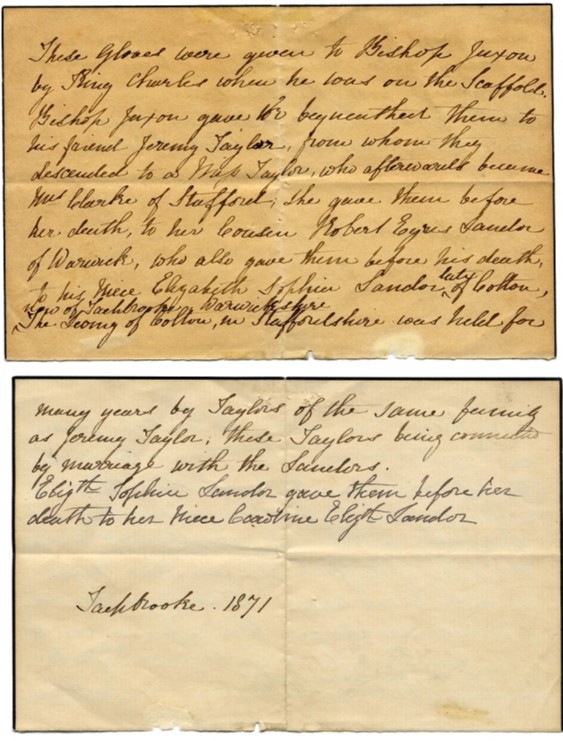 These Gloves were given to Bishop Juxon
by King Charles when he was on the Scaffold.
Bishop Juxon gave or bequeathed them to
his friend Jeremy Taylor, from whom they
descended to a Miss Taylor, who afterwards became
Mrs Clarke of Stafford; she gave them before
her death, to her Cousin Robert Eyres Landor
of Warwick, who also gave them before his death,
to his Niece Elizabeth Sophia Landor, late of Colton,
now of Tachbrooke, Warwickshire
The Living of Colton, in Staffordshire was held for
many years by Taylors of the same family
as Jeremy Taylor, these Taylors being connected
by marriage with the Landors.
Elizth Sophia Landor gave them before her
death to her Niece Caroline Elizth Landor
Tachbrooke. 1871